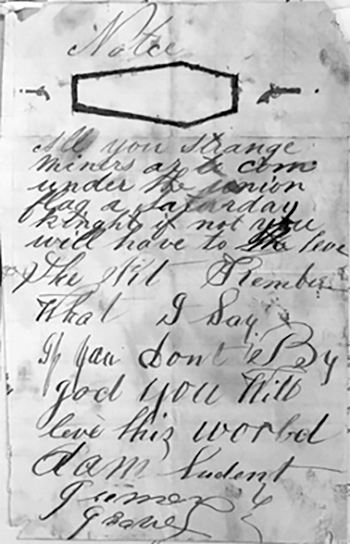 Notce
All you strange
miners ar to com
under the union
flag a saturday
knight if not you
will have to the leve
The Pit Rember
What I Say
If you dont By
god you Will
leve this worbd
dam Sudent